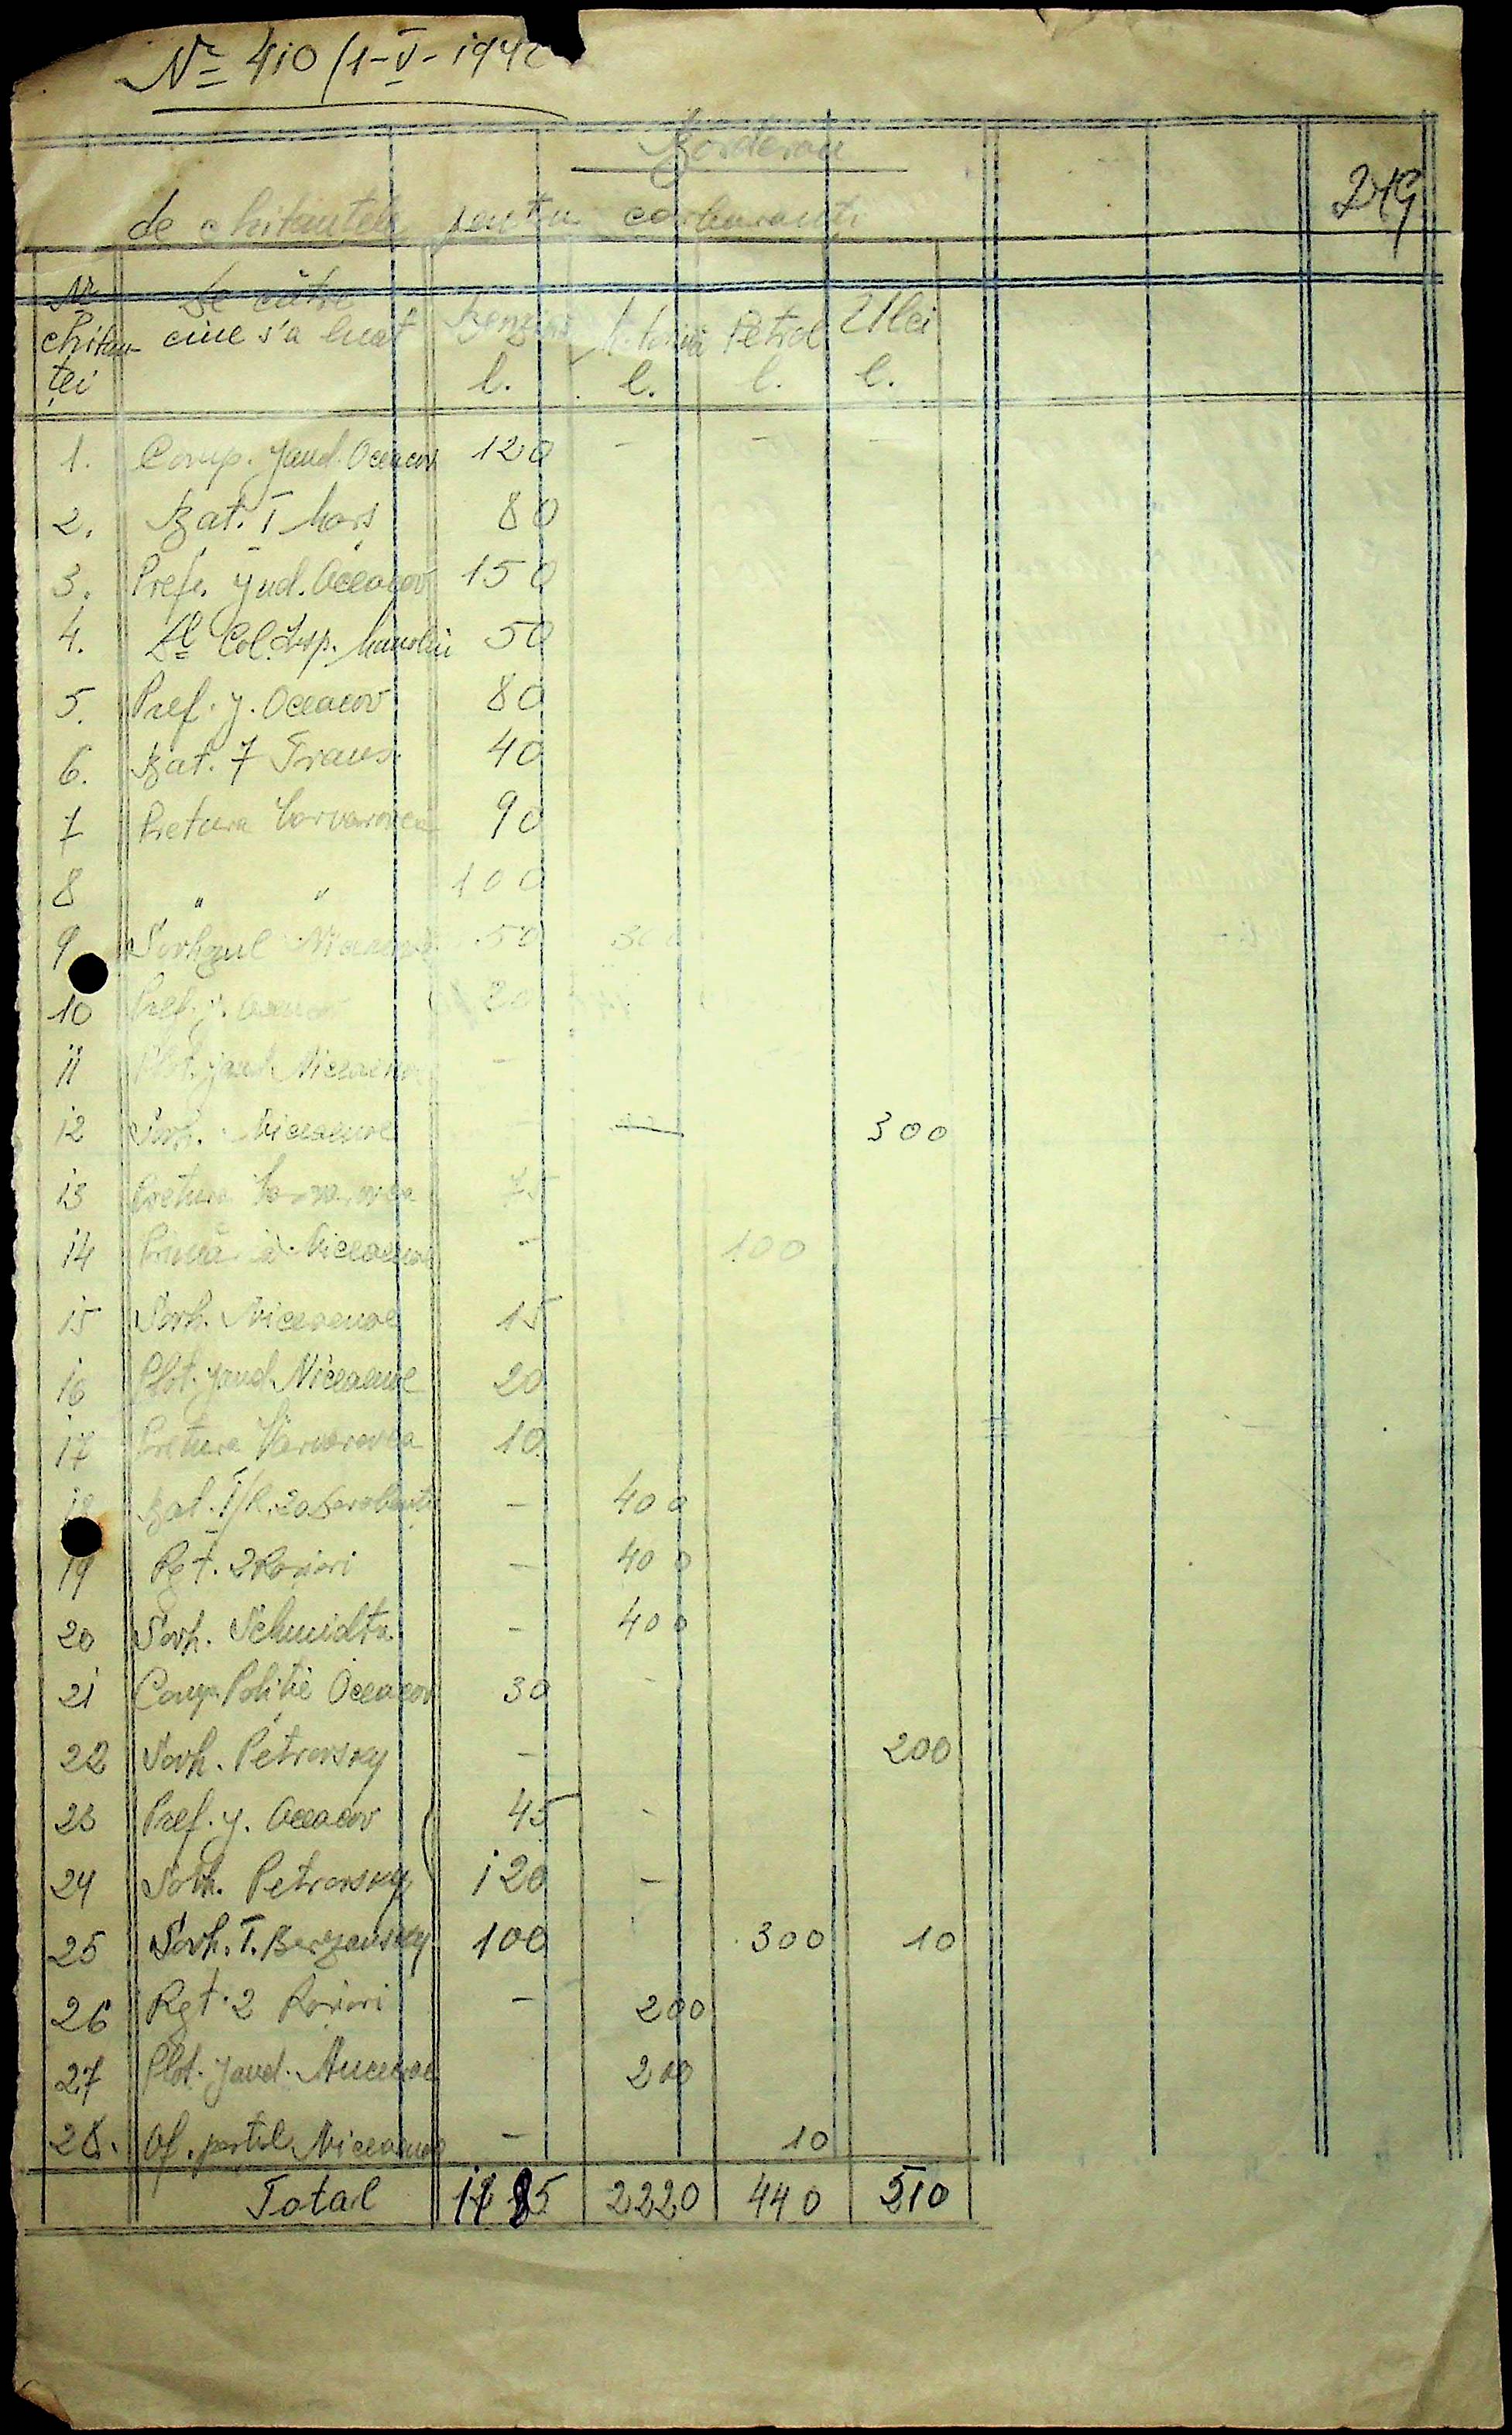 № 410/1-V-194
Borderou
249
de chitanțele pentru carburanți
Nr chitanței De către cine s'a luat Benzină l. Motorină l. Petrol l. Ulei l.
1. Comp. Jand. Oceacov 120 - - -
2. Bat. I 80
3. Pref. Jud. Oceacov 150
4. Lt Col. Insp. 50
5. Pref. J. Oceacov 80
6. Bat. 7 Trans. 40
7 Pretura Varvarovca 90
8 " " 100
9 Sovhozul 50 300
10 Pref. J. Oceacov 20
11 Plot. Jand. Niceaevoe -
12 Sovh. Niceaevoe - 300
13 Pretura Varvarovca 75
14 Primăria Niceaevoe - 100
15 Sovh. Niceaevoe 15
16 Plot. Jand. Niceaevoe 20
17 Pretura Varvarovca 10
18 Bat. I/R. 20 Dorobanți - 400
19 Rgt. 2 Roșiori - 400
20 Sovh. Schmidta - 400
21 Comp. Poliție Oceacov 30 -
22 Sovh. Petrovsky - 200
23 Pref. J. Oceacov 45 -
24 Sovh. Petrovsky 120 -
25 Sovh. T. Berzansky 100 300 10
26 Rgt. 2 Roșiori - 200
27 Plot. Jand. 200
28. Of. poștal Niceaevoe - 10
Total 1185 2220 440 510